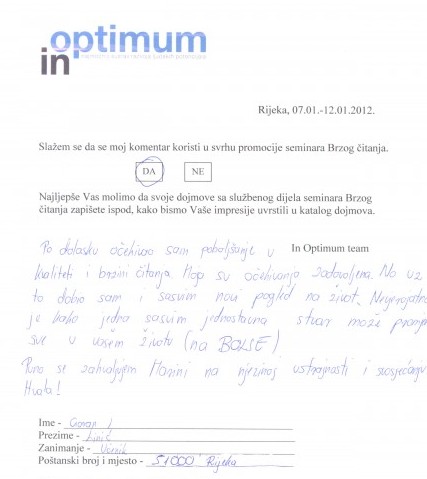 in optimum
Rijeka, 07.01.-12.01.2012.
Slažem se da se moj komentar koristi u svrhu promocije seminara Brzog čitanja.
DA NE
Najljepše Vas molimo da svoje dojmove sa službenog dijela seminara Brzog
čitanja zapišete ispod, kako bismo Vaše impresije uvrstili u katalog dojmova.
In Optimum team
Po dolasku očekivao sam poboljšanje u
kvaliteti i brzini čitanja. Moja su očekivanja zadovoljena. No uz
to dobio sam i sasvim novi pogled na život. Nevjerojatno
je kako jedna sasvim jednostavna stvar može prom
sve u vašem životu (na BOLJE)
Puno se zahvaljujem Marini na njezinoj ustrajnosti i suosjećanju
Hvala!
Ime - Goran
Prezime - Linić
Zanimanje - Učenik
Poštanski broj i mjesto - 51000 Rijeka